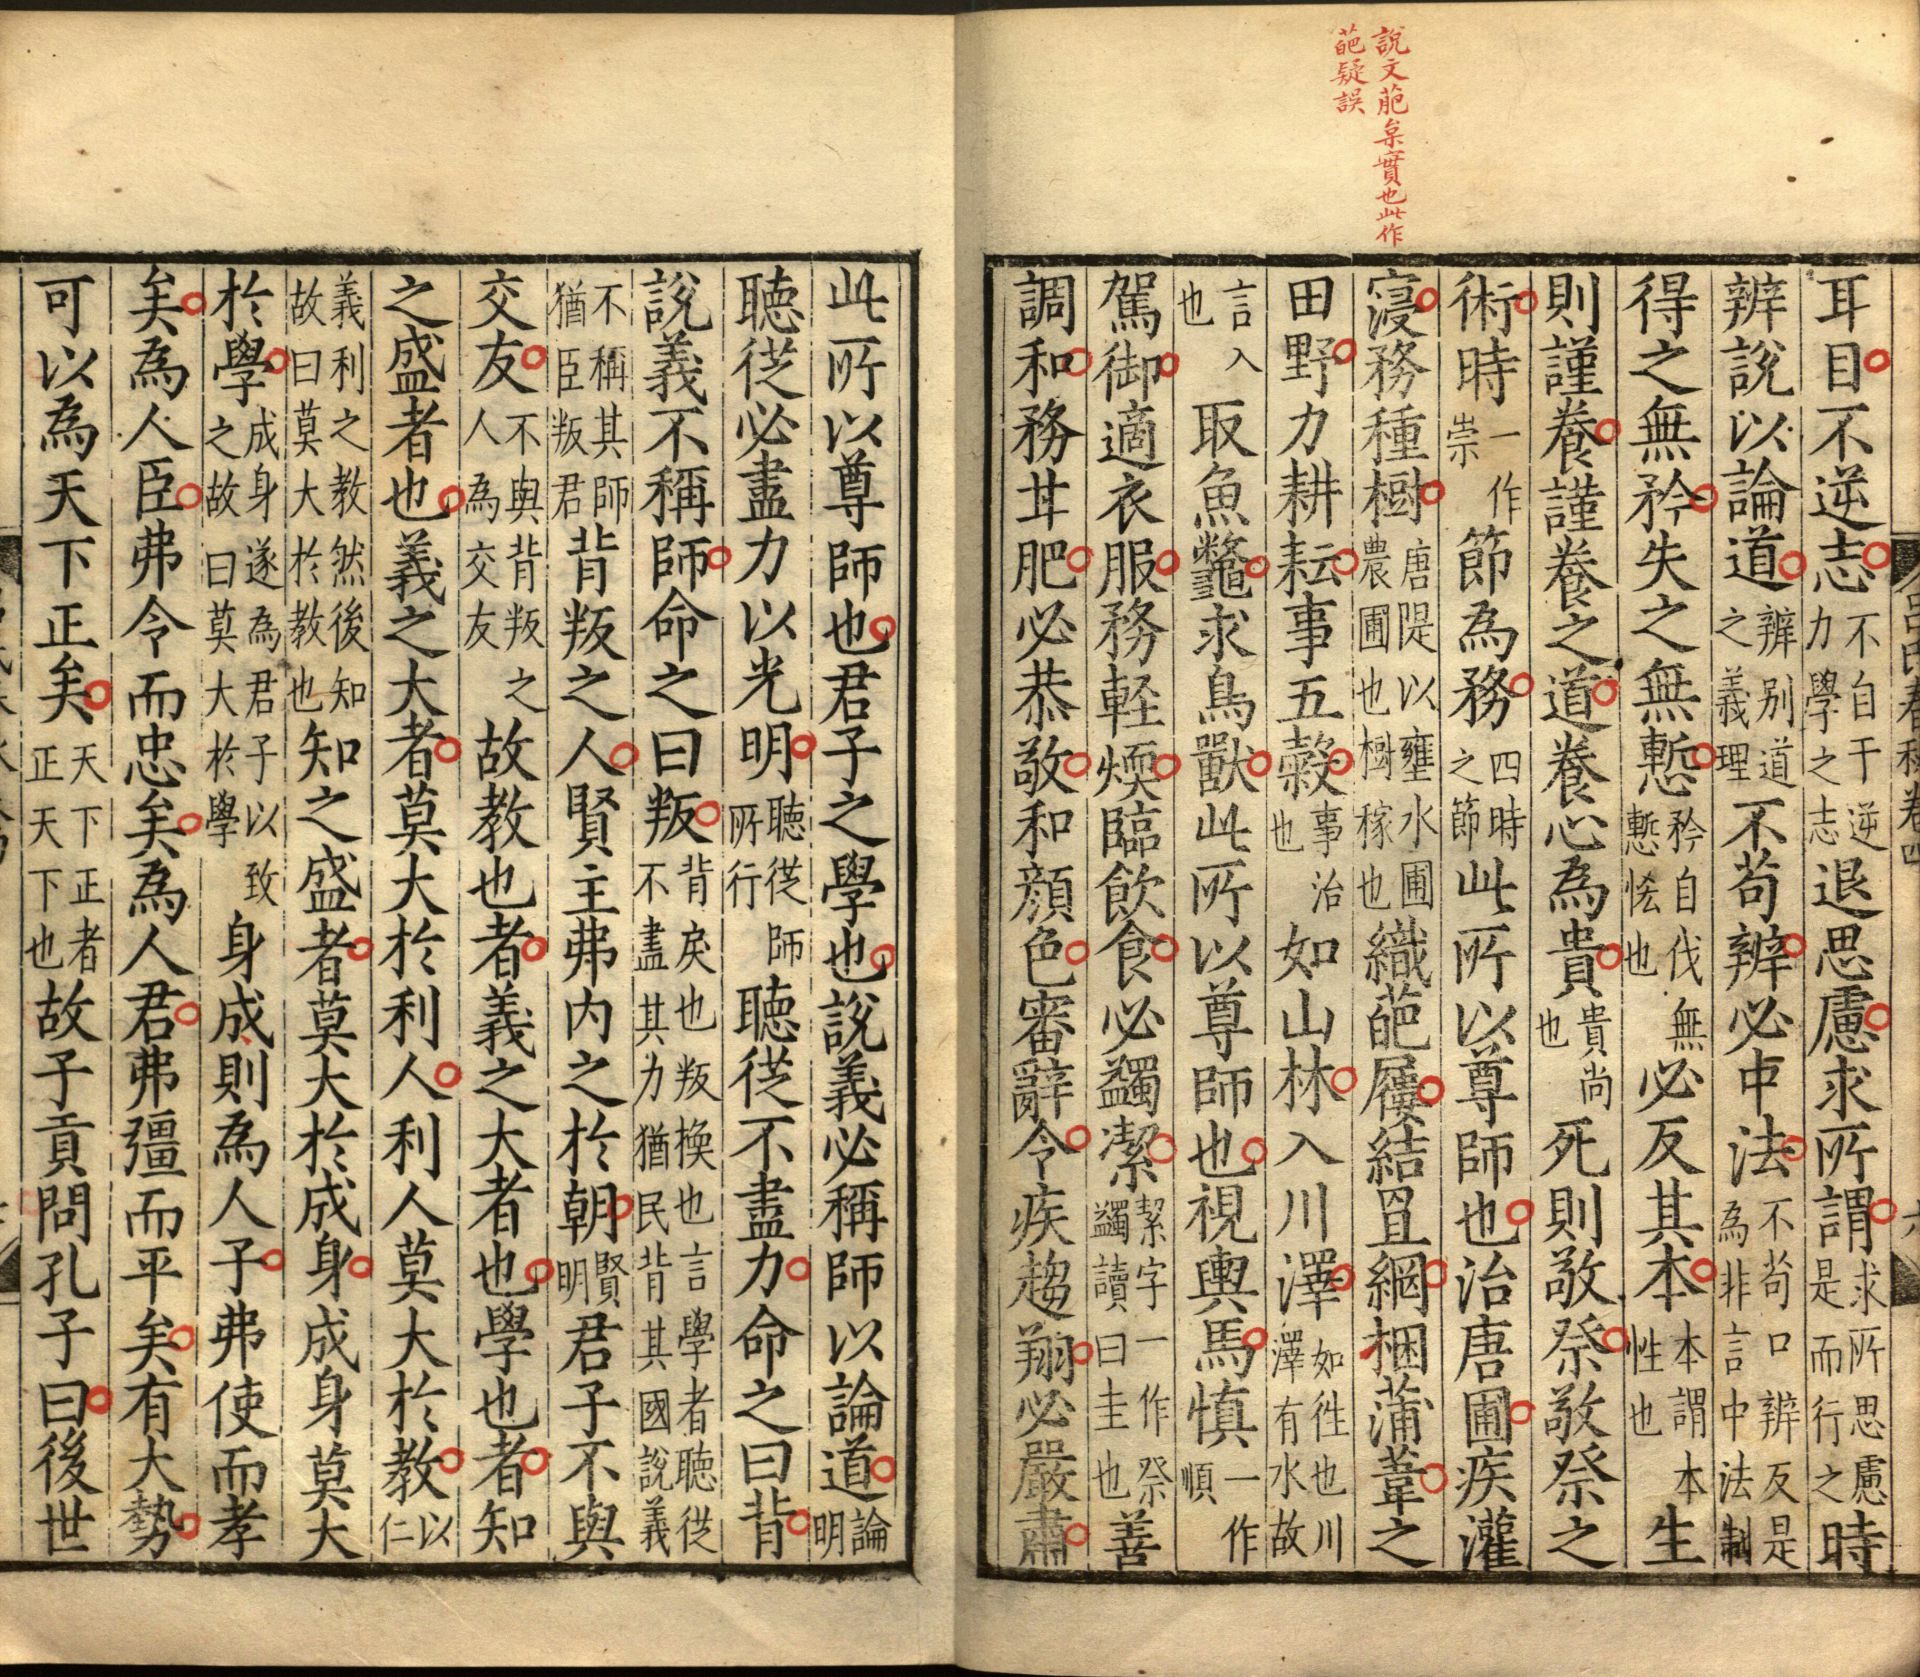 說文萉枲實也此作
葩疑誤
吕氏春秋卷四
六
耳目不逆志不自干逆力學之志退思慮求所謂求所思慮是而行之時
辨說以論道辨别道之義理不苟辨必中法不苟口辨反是為非言中法制
得之無矜失之無慙矜自伐無慙恡也必反其本本謂本性也生
則謹養謹養之道養心為貴貴尚也死則敬祭敬祭之
術時一作崇節為務四時之節此所以尊師也治唐圃疾灌
寖務種樹唐隄以壅水圃農圃也樹稼也織葩屨結罝網捆蒲葦之
田野力耕耘事五穀事治也如山林入川澤如徃也川澤有水故
言入也取魚鼈求鳥獸此所以尊師也視輿馬慎一作順
駕御適衣服務輕煗臨飲食必蠲潔潔字一作祭蠲讀曰圭也善
調和務甘肥必恭敬和顔色審辭令疾趨翔必嚴肅
此所以尊師也君子之學也說義必稱師以論道論明
聽從必盡力以光明聽從師所行聽從不盡力命之曰背
說義不稱師命之曰叛背戾也叛換也言學者聽從不盡其力猶民背其國說義
不稱其師猶臣叛君背叛之人賢主弗内之於朝賢明君子不與
交友不與背叛之人為交友故教也者義之大者也學也者知
之盛者也義之大者莫大於利人利人莫大於教以仁
義利之教然後知故曰莫大於教也知之盛者莫大於成身成身莫大
於學成身遂為君子以致之故曰莫大於學身成則為人子弗使而孝
矣為人臣弗令而忠矣為人君弗彊而平矣有大勢
可以為天下正矣天下正者正天下也故子貢問孔子曰後世